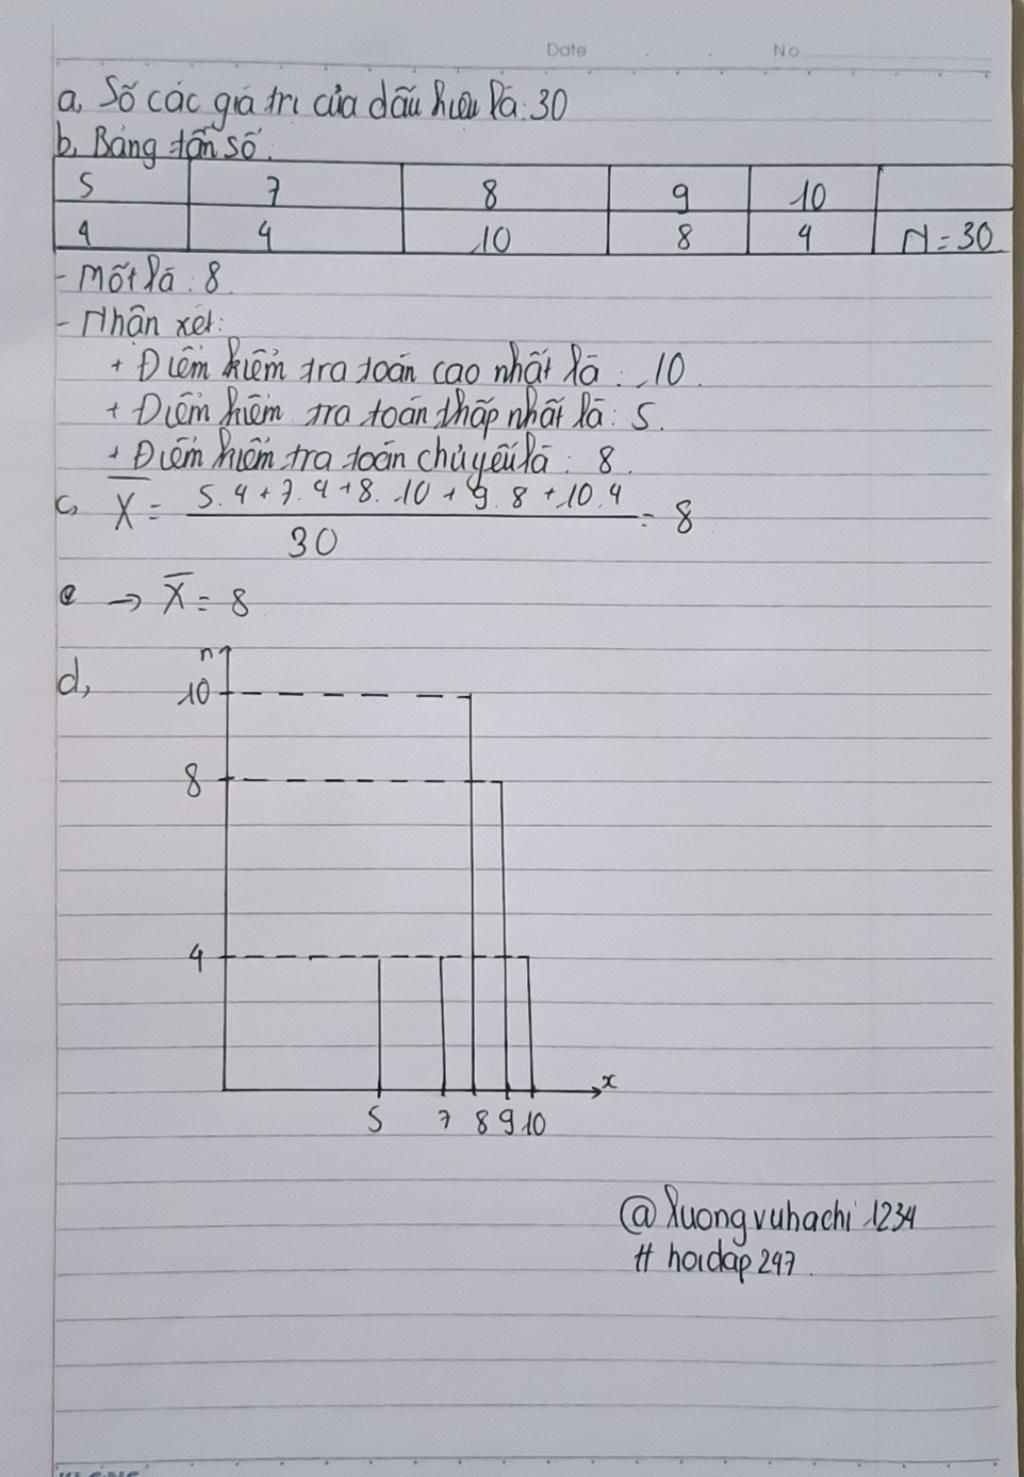 Date No
a, Số các giá trị của dấu hiệu là: 30
b, Bảng tần số:
5 7 8 9 10
4 4 10 8 4 N = 30
- Mốt là : 8
- Nhận xét:
+ Điểm kiểm tra toán cao nhất là : 10.
+ Điểm kiểm tra toán thấp nhất là : 5.
+ Điểm kiểm tra toán chủ yếu là : 8.
c, X̅ = (5.4 + 7.4 + 8.10 + 9.8 + 10.4) / 30 = 8
→ X̅ = 8
d,
n
10
8
4
x
5 7 8 9 10
@luongvuhachi1234
# hoidap247.